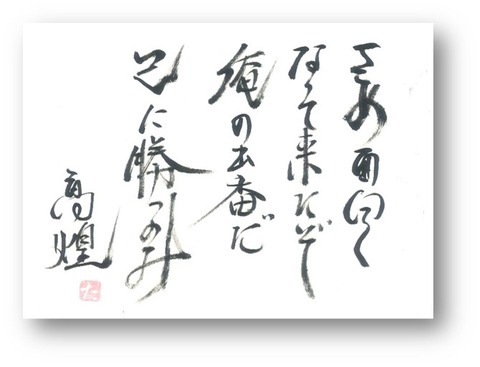 さあ面白く
なって来たぞ
俺の出番だ
己に勝つのみ
高煌
た